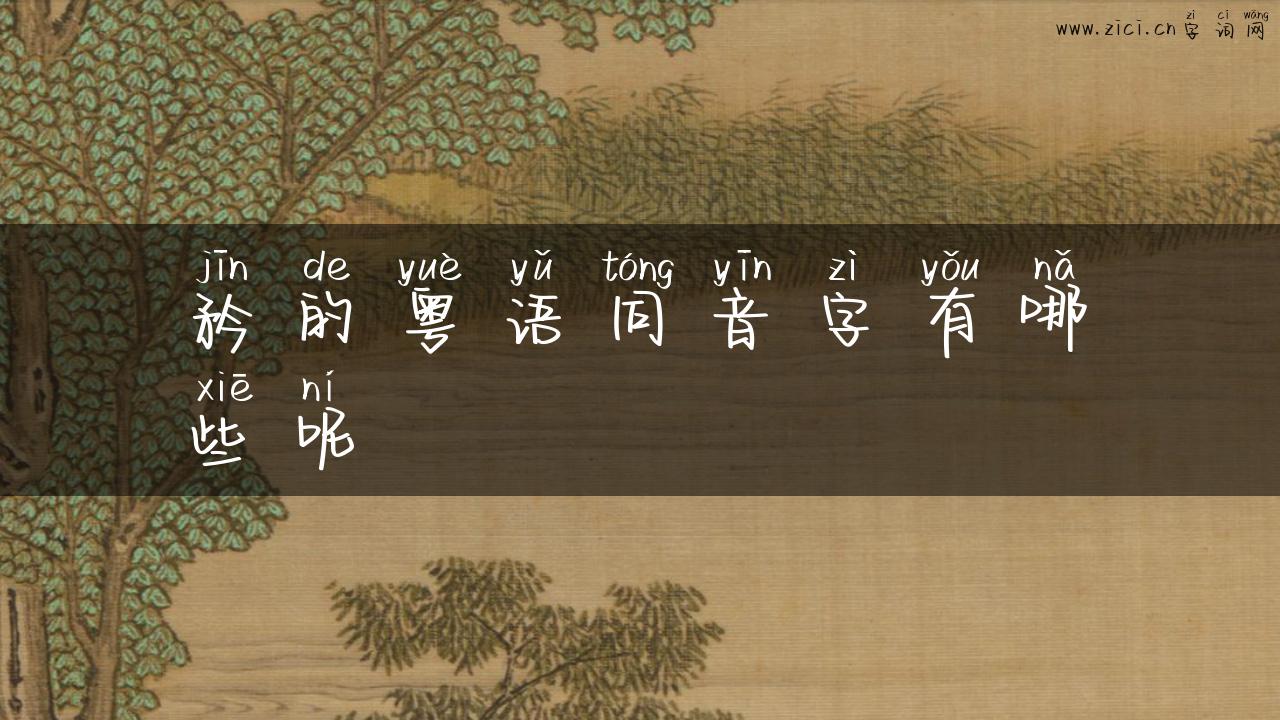 zì cí wǎng
www.zici.cn字词网
jīn de yuè yǔ tóng yīn zì yǒu nǎ
矜的粤语同音字有哪
xiē ní
些呢